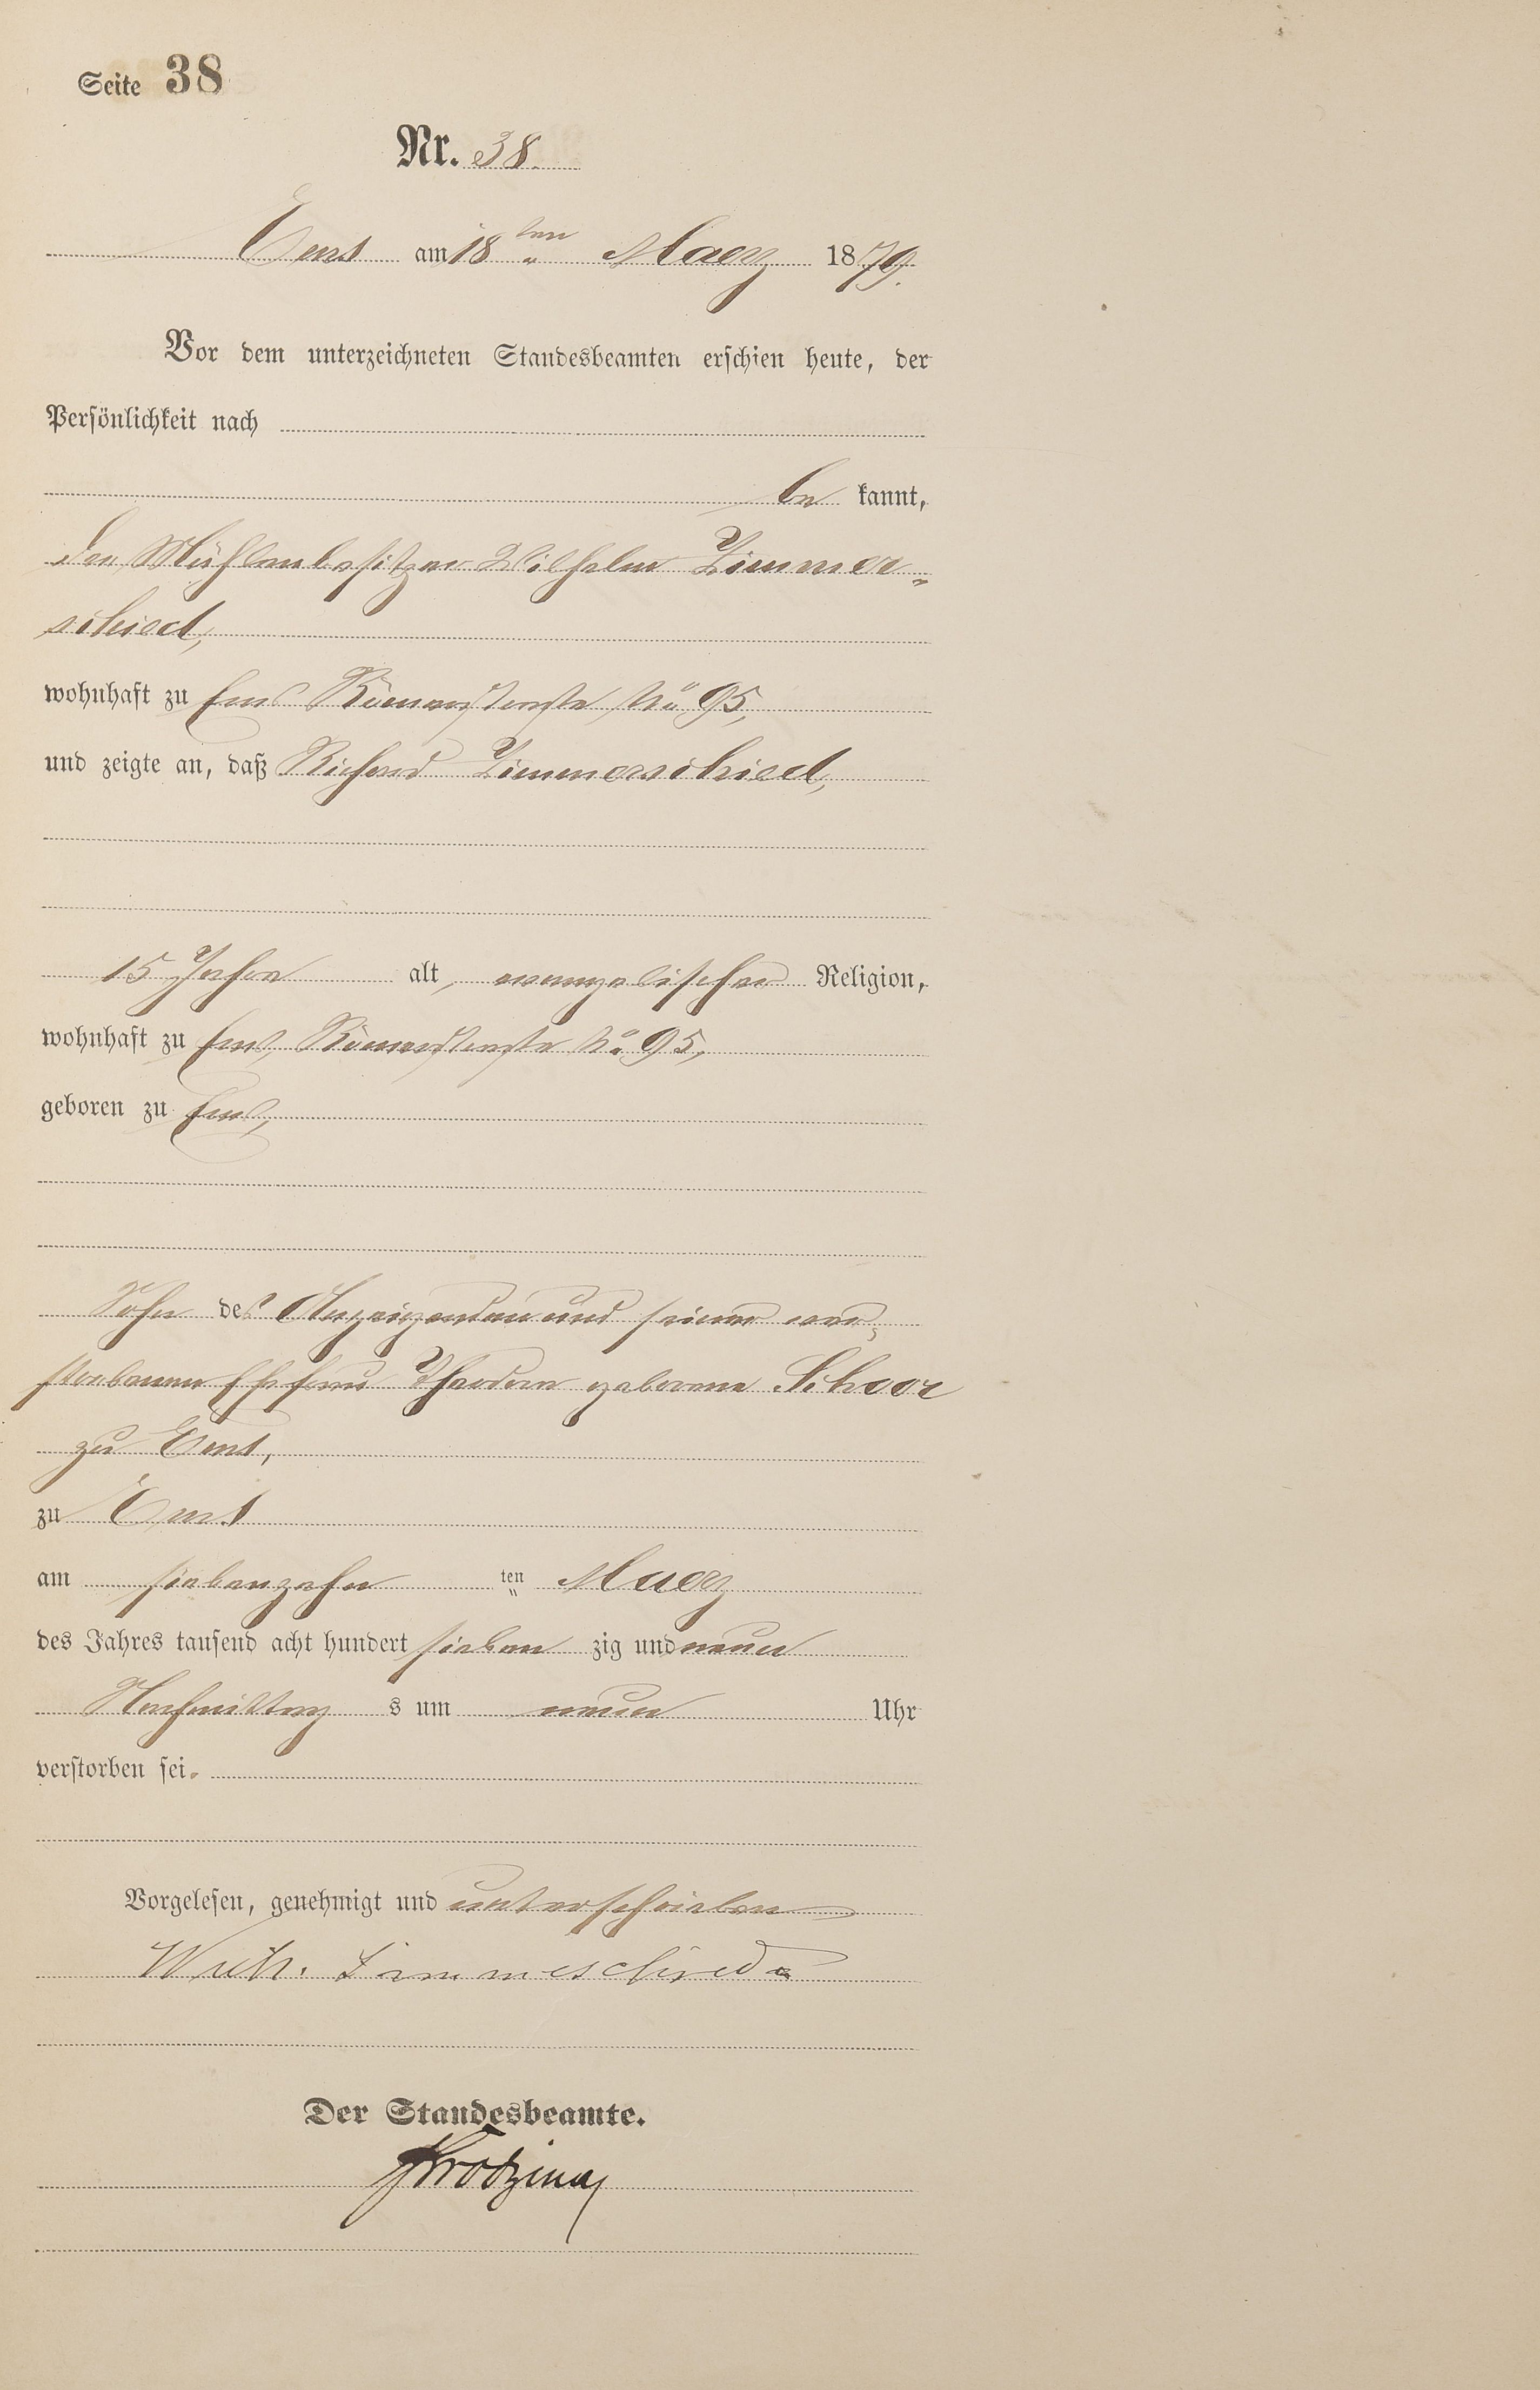 Seite 38
Nr. 38.
Ems am 18ten Maerz 1879.
Vor dem unterzeichneten Standesbeamten erschien heute, der
Persönlichkeit nach
be kannt,
der Mühlenbesitzer Wilhelm Zimmer-
schied,
wohnhaft zu Ems Römerstraße No 95,
und zeigte an, daß Richard Zimmerschied,
15 Jahre alt, evangelischer Religion,
wohnhaft zu Ems, Römerstraße No 95,
geboren zu Ems,
Sohn des Anzeigenden und seiner ver-
storbenen Ehefrau Theodora geborene Schoor
zu Ems,
zu Ems
am siebenzehn ten Maerz
des Jahres tausend acht hundert sieben zig und neun
Nachmittag s um neun Uhr
verstorben sei.
Vorgelesen, genehmigt und unterschrieben
Wilh. Zimmerschied
Der Standesbeamte.